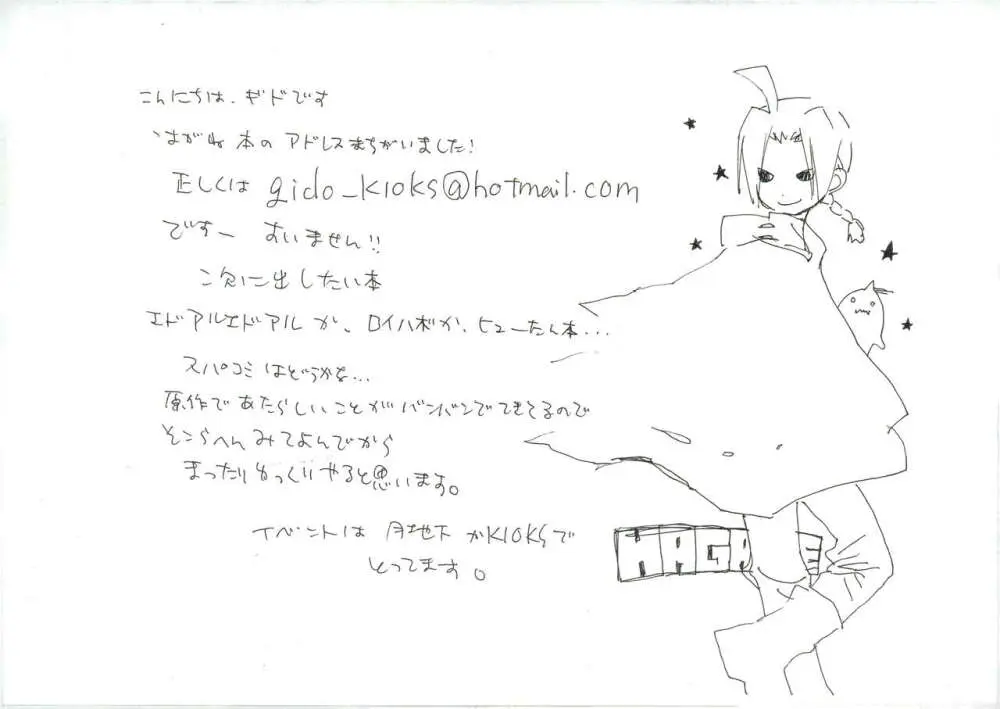 こんにちは、ギドです
はがね本のアドレスまちがいました!
正しくは gido_kloks@hotmail.com
ですー すいません!!
次に出したい本
エドアルエドアルか、ロイハボか、ヒューたん本...
スパコミはどうかな...
原作であたらしいことがバンバンでてきてるので
そこらへんみてよんでから
まったりゆっくりやると思います。
イベントは 月地下かKIOKSで
とってます。